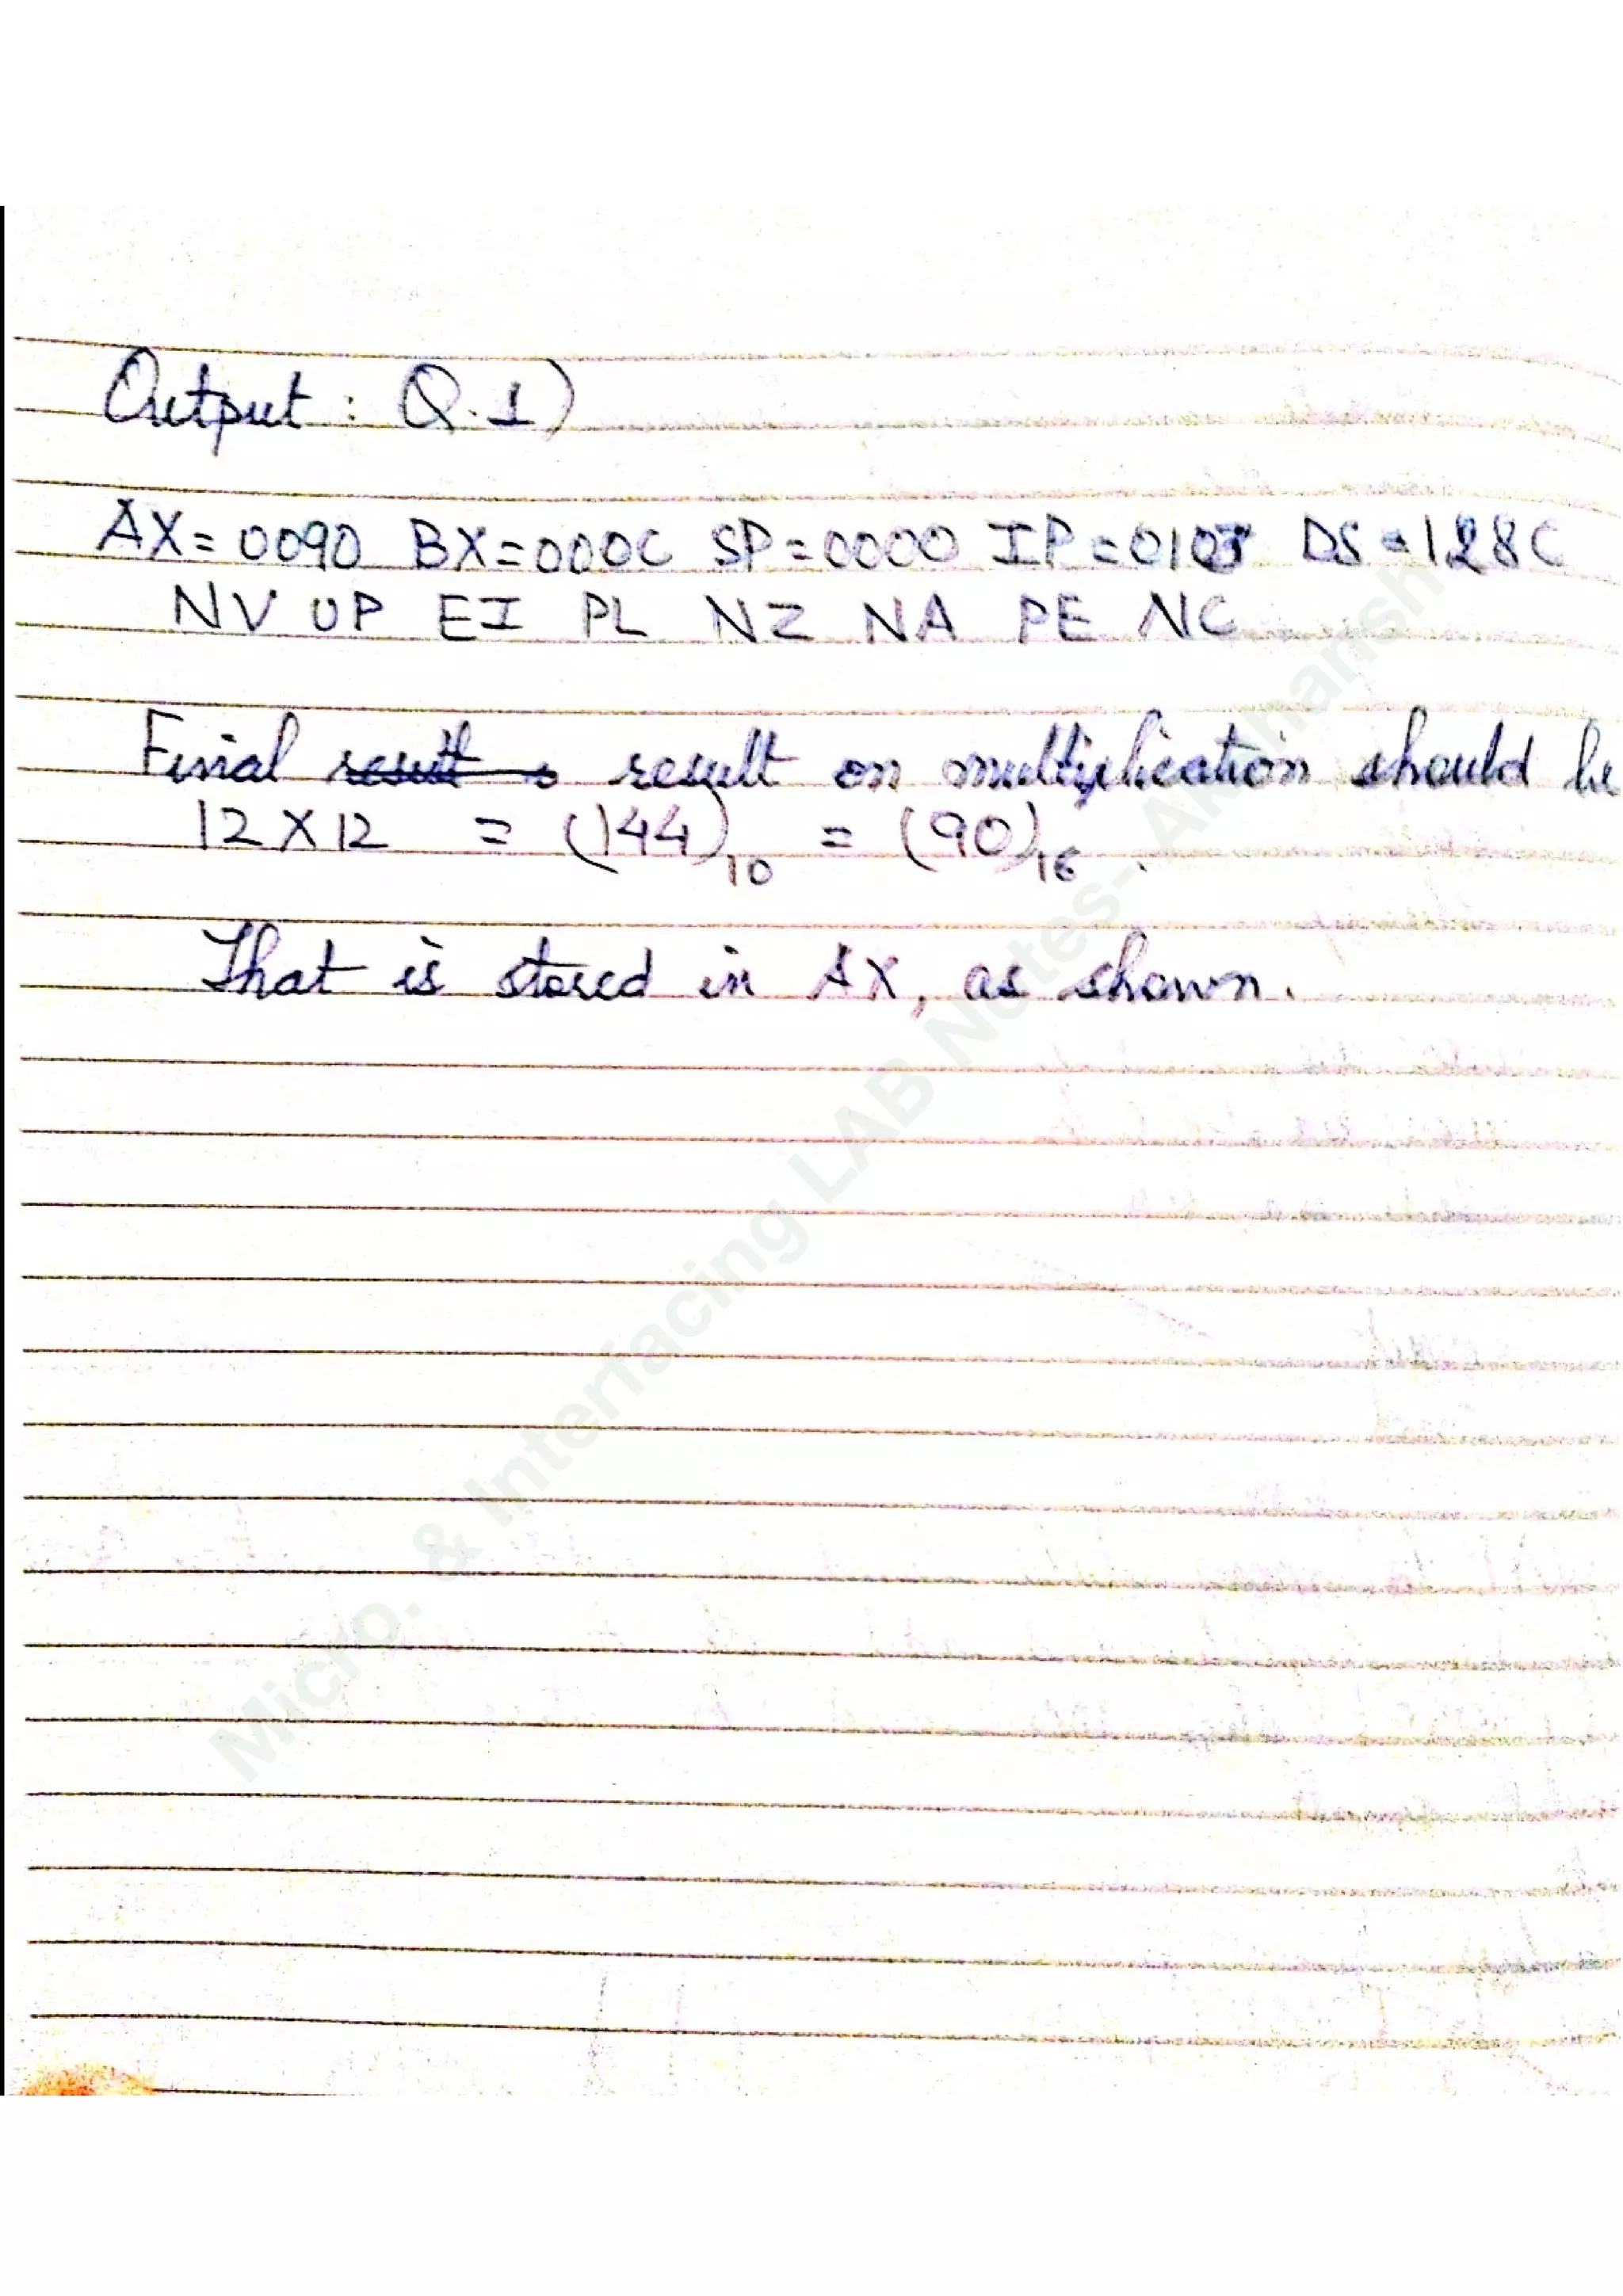 Output : Q.1)
AX=0090 BX=000C SP=0000 IP=0107 DS=128C
NV UP EI PL NZ NA PE NC
Final result on multiplication should be
12 X 12 = (144)10 = (90)16 .
That is stored in AX, as shown.
Micro. & Interfacing LAB Notes- Akshansh